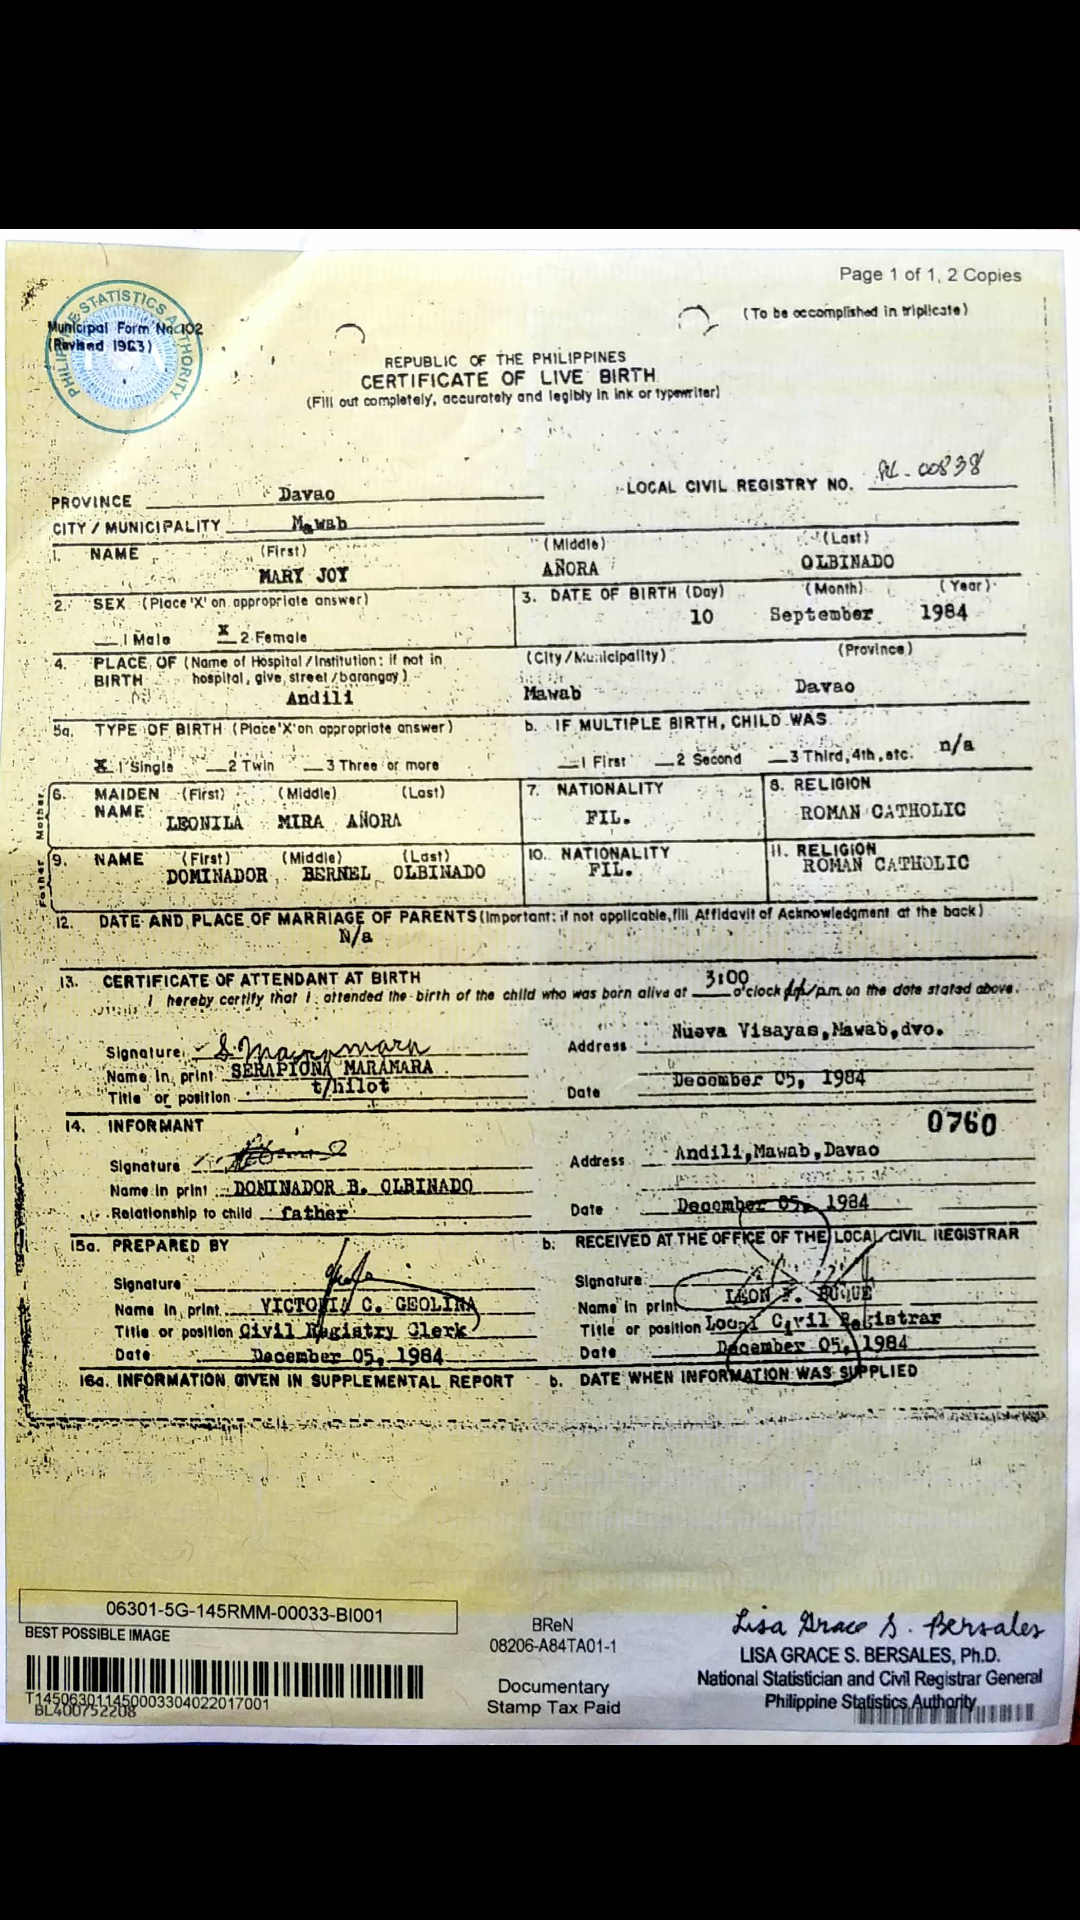 Page 1 of 1, 2 Copies
(To be accomplished in triplicate)
Municipal Form No. 102
(Revised 1983)
REPUBLIC OF THE PHILIPPINES
CERTIFICATE OF LIVE BIRTH
(Fill out completely, accurately and legibly in ink or typewriter)
LOCAL CIVIL REGISTRY NO. 00838
PROVINCE Davao
CITY / MUNICIPALITY Mawab
1. NAME (First) (Middle) (Last)
MARY JOY AÑORA OLBINADO
2. SEX (Place 'X' on appropriate answer) 3. DATE OF BIRTH (Day) (Month) (Year)
1 Male X 2 Female 10 September 1984
4. PLACE OF (Name of Hospital / Institution; if not in (City / Municipality) (Province)
BIRTH hospital, give street / barangay)
Andili Mawab Davao
5a. TYPE OF BIRTH (Place 'X' on appropriate answer) b. IF MULTIPLE BIRTH, CHILD WAS
X 1 Single 2 Twin 3 Three or more 1 First 2 Second 3 Third, 4th, etc. n/a
Mother
6. MAIDEN (First) (Middle) (Last) 7. NATIONALITY 8. RELIGION
NAME LEONILA MIRA AÑORA FIL. ROMAN CATHOLIC
Father
9. NAME (First) (Middle) (Last) 10. NATIONALITY 11. RELIGION
DOMINADOR BERNEL OLBINADO FIL. ROMAN CATHOLIC
12. DATE AND PLACE OF MARRIAGE OF PARENTS (Important: if not applicable, fill Affidavit of Acknowledgment at the back)
N/a
13. CERTIFICATE OF ATTENDANT AT BIRTH
I hereby certify that I attended the birth of the child who was born alive at 3:00 o'clock /p.m. on the date stated above.
Signature S. Maramara Address Nueva Visayas, Mawab, dvo.
Name in print SERAPIONA MARAMARA
Title or position t/hilot Date December 05, 1984
0760
14. INFORMANT
Signature Address Andili, Mawab, Davao
Name in print DOMINADOR B. OLBINADO
Relationship to child father Date December 05, 1984
15a. PREPARED BY b. RECEIVED AT THE OFFICE OF THE LOCAL CIVIL REGISTRAR
Signature Signature
Name in print VICTORIA C. GEOLINA Name in print LEON P. DUQUE
Title or position Civil Registry Clerk Title or position Local Civil Registrar
Date December 05, 1984 Date December 05, 1984
16a. INFORMATION GIVEN IN SUPPLEMENTAL REPORT b. DATE WHEN INFORMATION WAS SUPPLIED
06301-5G-145RMM-00033-BI001
BEST POSSIBLE IMAGE
T145063011450003304022017001
BL400752208
BReN
08206-A84TA01-1
Documentary
Stamp Tax Paid
Lisa Grace S. Bersales
LISA GRACE S. BERSALES, Ph.D.
National Statistician and Civil Registrar General
Philippine Statistics Authority